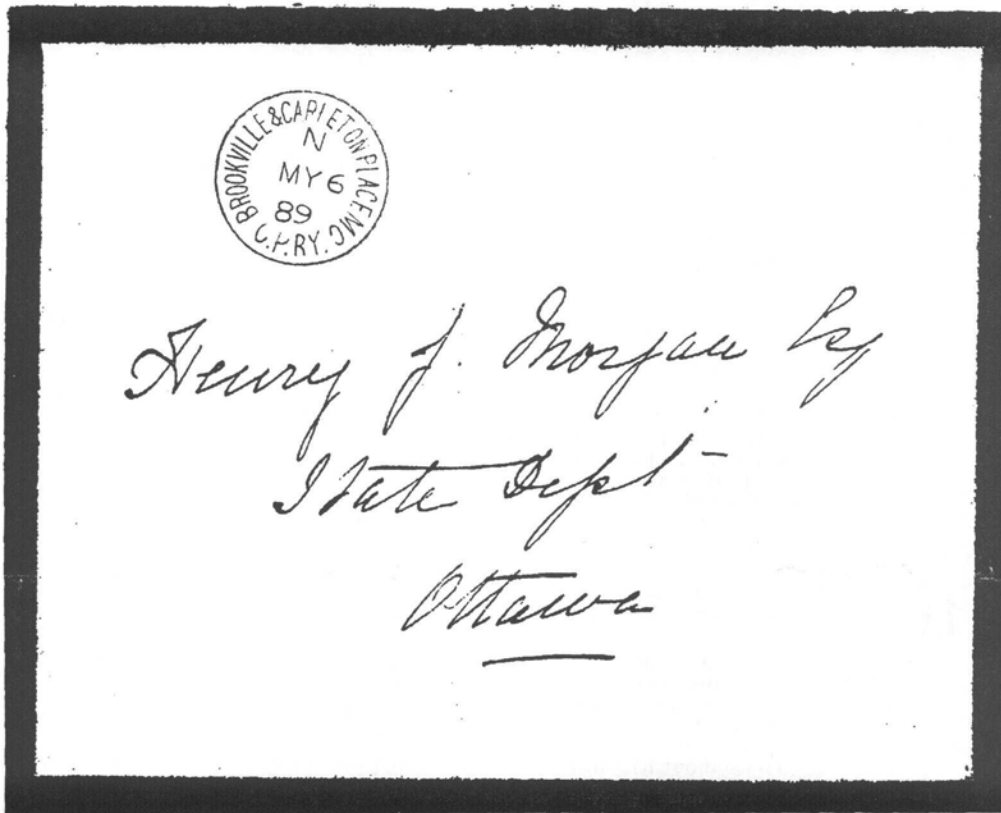 BROOKVILLE & CARLETON PLACE M.C.
N
MY 6
89
C.P.RY.
Henry J. Morgan Esq
State Dept
Ottawa